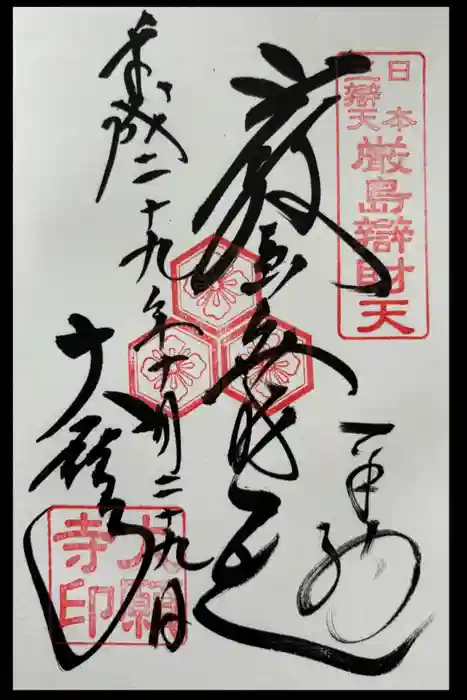 日本
三辯天
厳島辯財天
奉拝
厳島弁財天
平成二十九年十月二十九日
大願寺
大願
寺印